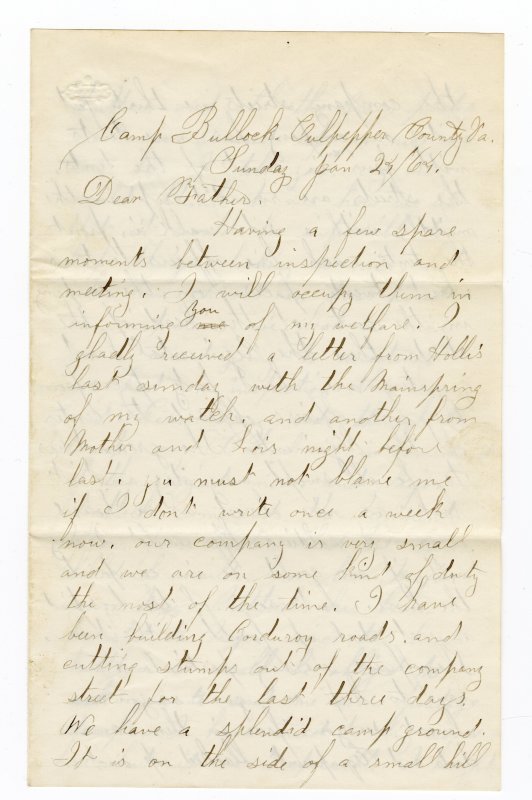 Camp Bullock. Culpepper County Va.
Sunday Jan 24/64.
Dear Father.
Having a few spare
moments between inspection and
meeting. I will occupy them in
informing you me of my welfare. I
gladly received a letter from Hollis
last sunday with the Mainspring
of my watch. and another from
Mother and Lois night before
last. you must not blame me
if I dont write once a week
now. our company is very small
and we are on some kind of duty
the most of the time. I have
been building Corduroy roads. and
cutting stumps out of the company
street for the last three days.
We have a splendid camp ground.
It is on the side of a small hill